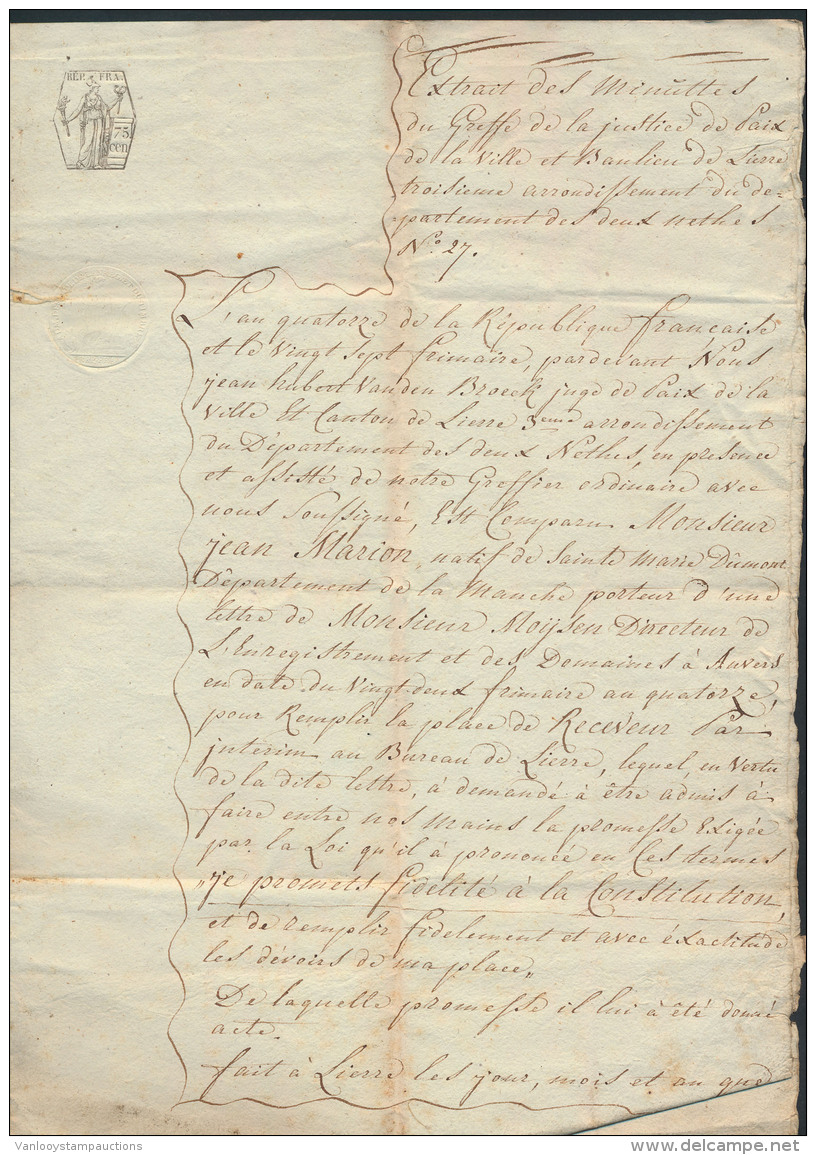 RÉP. FRA.
75.
cen
Extrait des Minuttes
du Greffe de la justice de Paix,
de la Ville et Banlieu de Lierre
troisieme arrondissement du de=
partement des deux nethes
N.o 27.
L'an quatorze de la République française
et le Vingt Sept frimaire, pardevant Nous
jean hubert Vanden Broeck juge de Paix de la
Ville Et Canton de Lierre 3eme arrondissement
du Département des deux Nethes, en presence
et assisté de notre Greffier ordinaire avec
nous Soussigné, Est Comparu Monsieur
jean Marion, natif de Sainte Marie Dûmont
Département de la Manche porteur d'une
lettre de Monsieur Moÿsen Directeur de
L'Enregistrement et des Domaines à Anvers
en date du Vingt-deux frimaire an quatorze,
pour Remplir la place de Receveur Par
interim au Bureau de Lierre, lequel, en Vertu
de la dite lettre, à demandé à être admis à
faire entre nos mains la promesse Exigée
par la Loi qu'il à prononcée en Ces termes
„je promets fidelité à la Constitution,
et de remplir fidelement et avec éxactitude
les dévoirs de ma place„
De laquelle promesse il lui à été donné
acte.
fait à Lierre les jour, mois et an que
Vanlooystampauctions
delcampe.net